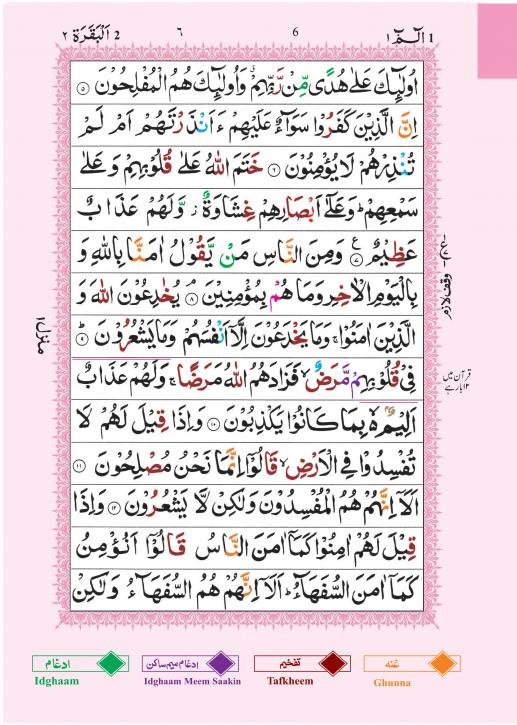 1 الٓمّٓ ١
6
٦
2 اَلْبَقَرَة ٢
اُولٰٓئِكَ عَلٰى هُدًى مِّنْ رَّبِّهِمْ ۗ وَاُولٰٓئِكَ هُمُ الْمُفْلِحُوْنَ ۝٥
اِنَّ الَّذِيْنَ كَفَرُوْا سَوَآءٌ عَلَيْهِمْ ءَاَنْذَرْتَهُمْ اَمْ لَمْ
تُنْذِرْهُمْ لَا يُؤْمِنُوْنَ ۝٦ خَتَمَ اللّٰهُ عَلٰى قُلُوْبِهِمْ وَعَلٰى
سَمْعِهِمْ ؕ وَعَلٰٓى اَبْصَارِهِمْ غِشَاوَةٌ ز وَّلَهُمْ عَذَابٌ
عَظِيْمٌ ۝٧ ع وَمِنَ النَّاسِ مَنْ يَّقُوْلُ اٰمَنَّا بِاللّٰهِ وَ
بِالْيَوْمِ الْاٰخِرِ وَمَا هُمْ بِمُؤْمِنِيْنَ ۝٨ يُخٰدِعُوْنَ اللّٰهَ وَ
الَّذِيْنَ اٰمَنُوْا ۚ وَمَا يَخْدَعُوْنَ اِلَّآ اَنْفُسَهُمْ وَمَا يَشْعُرُوْنَ ۝٩
فِيْ قُلُوْبِهِمْ مَّرَضٌ ۙ فَزَادَهُمُ اللّٰهُ مَرَضًا ۚ وَلَهُمْ عَذَابٌ
اَلِيْمٌۢ ۙ بِمَا كَانُوْا يَكْذِبُوْنَ ۝١٠ وَاِذَا قِيْلَ لَهُمْ لَا
تُفْسِدُوْا فِي الْاَرْضِ ۙ قَالُوْٓا اِنَّمَا نَحْنُ مُصْلِحُوْنَ ۝١١
اَلَآ اِنَّهُمْ هُمُ الْمُفْسِدُوْنَ وَلٰكِنْ لَّا يَشْعُرُوْنَ ۝١٢ وَاِذَا
قِيْلَ لَهُمْ اٰمِنُوْا كَمَآ اٰمَنَ النَّاسُ قَالُوْٓا اَنُؤْمِنُ
كَمَآ اٰمَنَ السُّفَهَآءُ ؕ اَلَآ اِنَّهُمْ هُمُ السُّفَهَآءُ وَلٰكِنْ
وقف لازم
قرآن میں
۱۲ بار ہے
منزل ١
ادغام
Idghaam
ادغام میم ساکن
Idghaam Meem Saakin
تفخیم
Tafkheem
غنہ
Ghunna